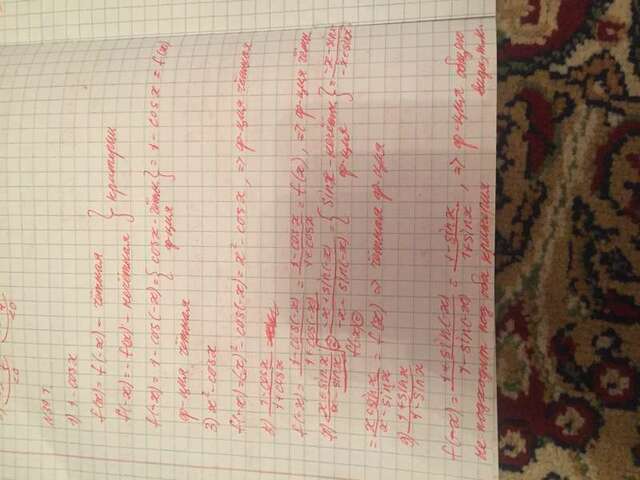 1) 1 - cosx
f(x) = f(-x) - чётная
f(-x) = -f(x) - нечётная } критерии
f(-x) = 1 - cos(-x) = { cosx - чётн. ф-ция } = 1 - cosx = f(x)
ф-ция чётная
3) x² - cosx
f(-x) = (-x)² - cos(-x) = x² - cosx, => ф-ция чётная
5) (1 - cosx)/(1 + cosx)
f(-x) = (1 - cos(-x))/(1 + cos(-x)) = (1 - cosx)/(1 + cosx) = f(x), => ф-ция чётн
7) (x + sinx)/(x - sinx) f(-x) = (-x + sin(-x))/(-x - sin(-x)) = { sinx - нечётн. ф-ция } = (-x - sinx)/(-x + sinx)
= (x + sinx)/(x - sinx) = f(x) => чётная ф-ция
9) (1 + sinx)/(1 - sinx)
f(-x) = (1 + sin(-x))/(1 - sin(-x)) = (1 - sinx)/(1 + sinx), => ф-ция общего
не подходит под оба критерия вида, т.к.